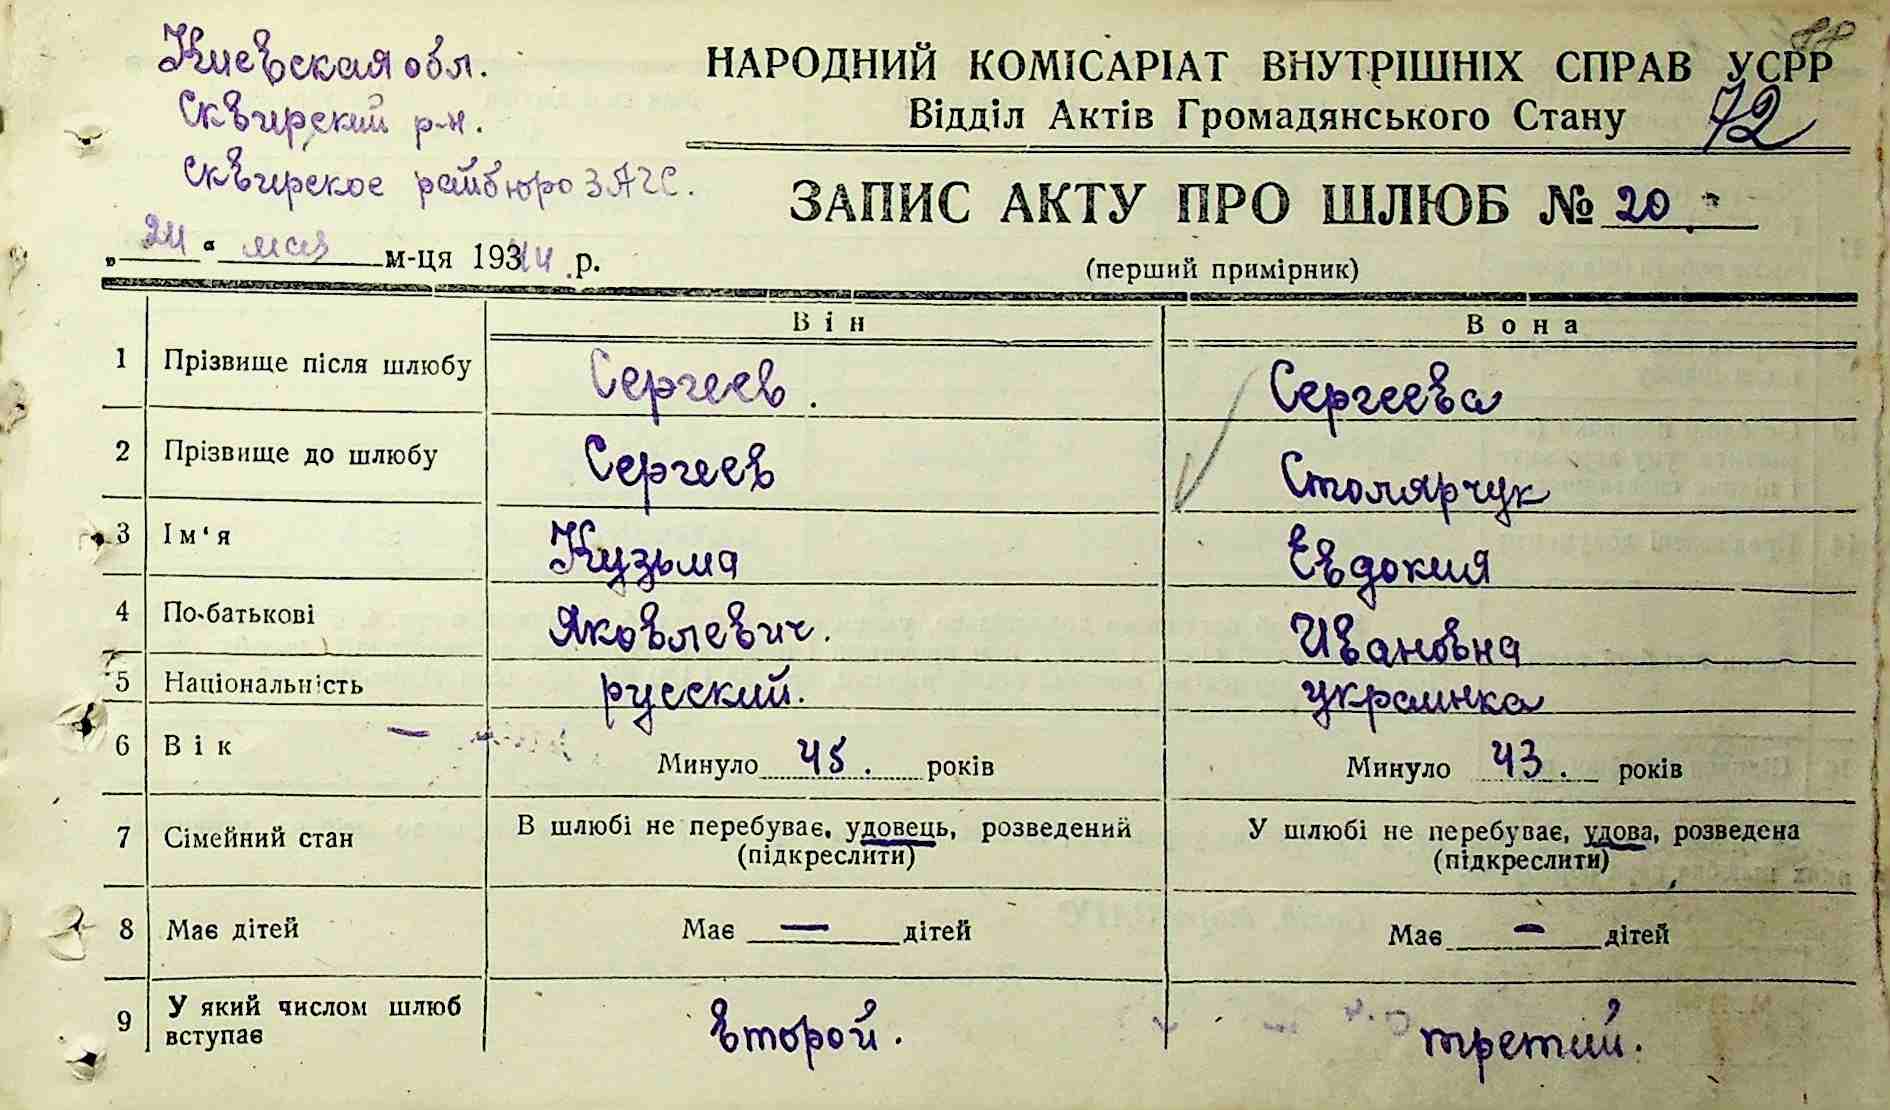 Киевская обл.
Сквирский р-н.
Сквирское райбюро ЗАГС.
НАРОДНИЙ КОМІСАРІАТ ВНУТРІШНІХ СПРАВ УСРР
Відділ Актів Громадянського Стану 72
ЗАПИС АКТУ ПРО ШЛЮБ № 20
(перший примірник)
„24“ мая м-ця 1944 р.
Він Вона
1 Прізвище після шлюбу Сергеев. Сергеева
2 Прізвище до шлюбу Сергеев Столярчук
3 Ім‘я Кузьма Евдокия
4 По-батькові Яковлевич. Ивановна
5 Національність русский. украинка
6 Вік Минуло 45. років Минуло 43. років
7 Сімейний стан В шлюбі не перебуває, удовець, розведений У шлюбі не перебуває, удова, розведена
(підкреслити) (підкреслити)
8 Має дітей Має — дітей Має — дітей
9 У який числом шлюб вступає второй. третий.